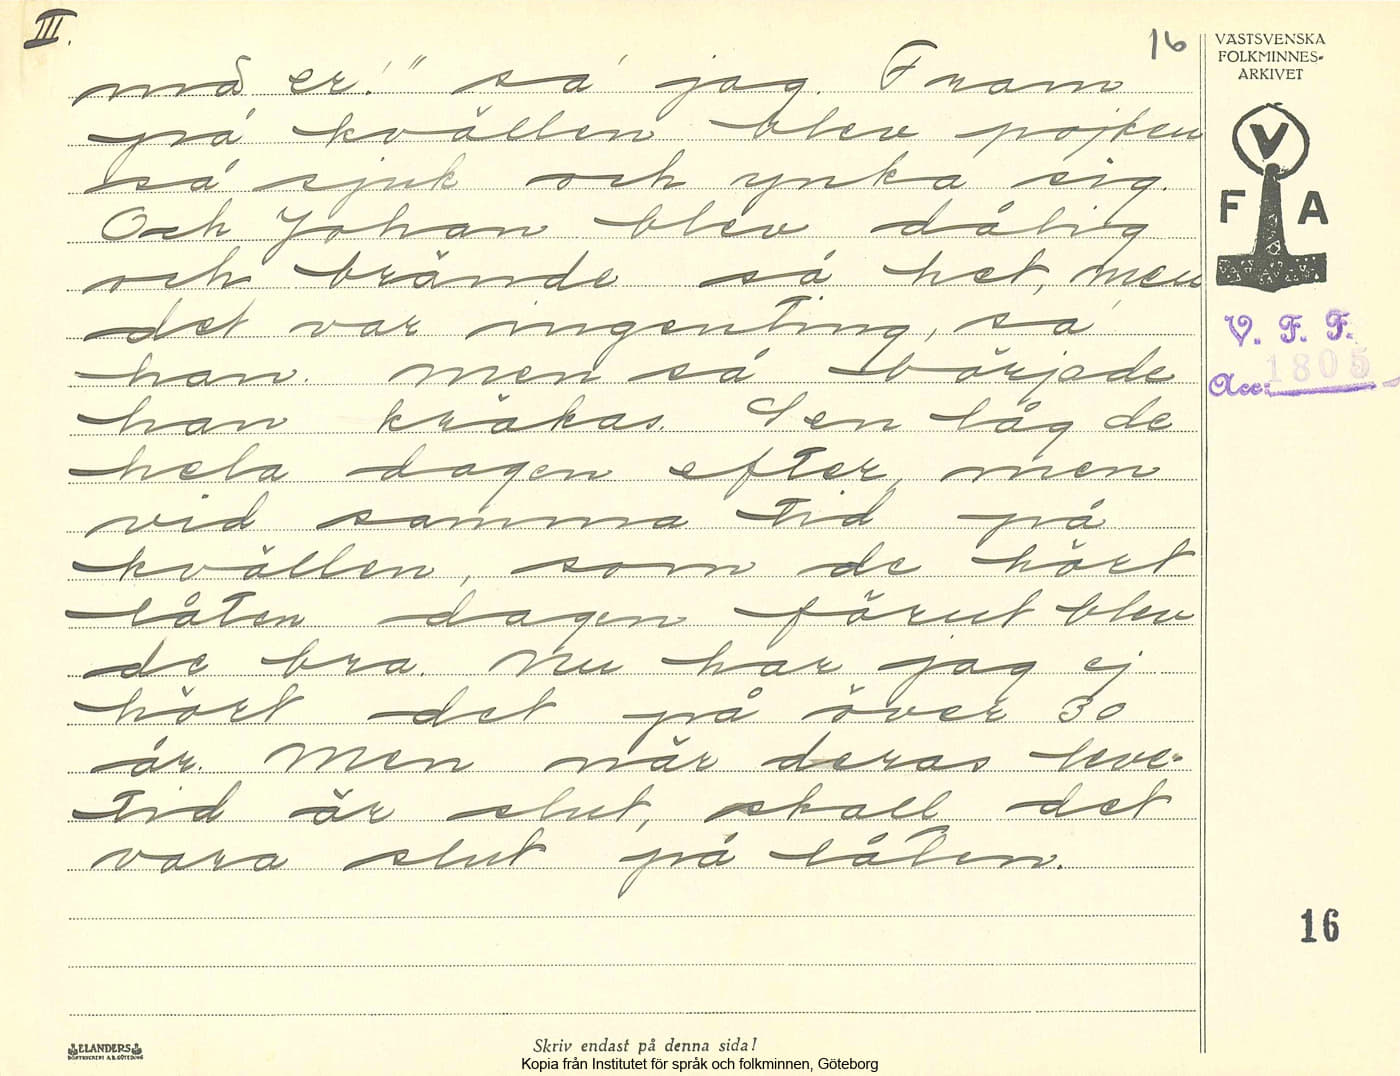 III.
16
VÄSTSVENSKA
FOLKMINNES-
ARKIVET
må er!" sa' jag. Fram
på kvällen blev pojken
så sjuk och ynka sig.
Och Johan blev dålig
och brände så het, men
det var ingenting, sa'
han. Men så började
han kräkas. Sen låg de
hela dagen efter, men
vid samma tid på
kvällen, som de hört
låten dagen förut blev
de bra. Nu har jag ej
hört det på över 30
år. Men när deras leve-
tid är slut, skall det
vara slut på låten.
V
F A
V. F. F.
Acc: 1805
16
ELANDERS
BOKTRYCKERI A.B. GÖTEBORG
Skriv endast på denna sida!
Kopia från Institutet för språk och folkminnen, Göteborg